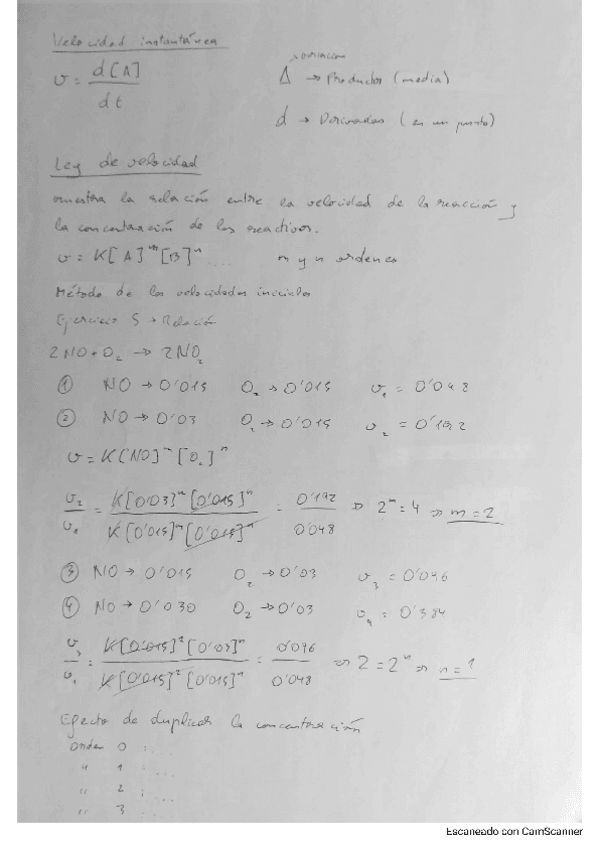 Velocidad instantánea
v = d[A] / dt
variación
Δ → Productos (media)
d → Derivadas (en un punto)
Ley de velocidad
muestra la relación entre la velocidad de la reacción y
la concentración de los reactivos.
v = K[A]^m [B]^n .... m y n ordenes
Método de las velocidades iniciales
Ejercicio 5 → Relación
2NO + O₂ → 2NO₂
① NO → 0'015 O₂ → 0'015 v₁ = 0'048
② NO → 0'03 O₂ → 0'015 v₂ = 0'192
v = K[NO]^m [O₂]^n
v₂/v₁ = K[0'03]^m [0'015]^n / K[0'015]^m [0'015]^n = 0'192 / 0'048 ⇒ 2^m = 4 ⇒ m = 2
③ NO → 0'015 O₂ → 0'03 v₃ = 0'096
④ NO → 0'030 O₂ → 0'03 v₄ = 0'384
v₃/v₁ = K[0'015]² [0'03]^n / K[0'015]² [0'015]^n = 0'096 / 0'048 ⇒ 2 = 2^n ⇒ n = 1
Efecto de duplicar la concentración
Orden 0 : ...
" 1 : ...
" 2 : ...
" 3 : ...
Escaneado con CamScanner